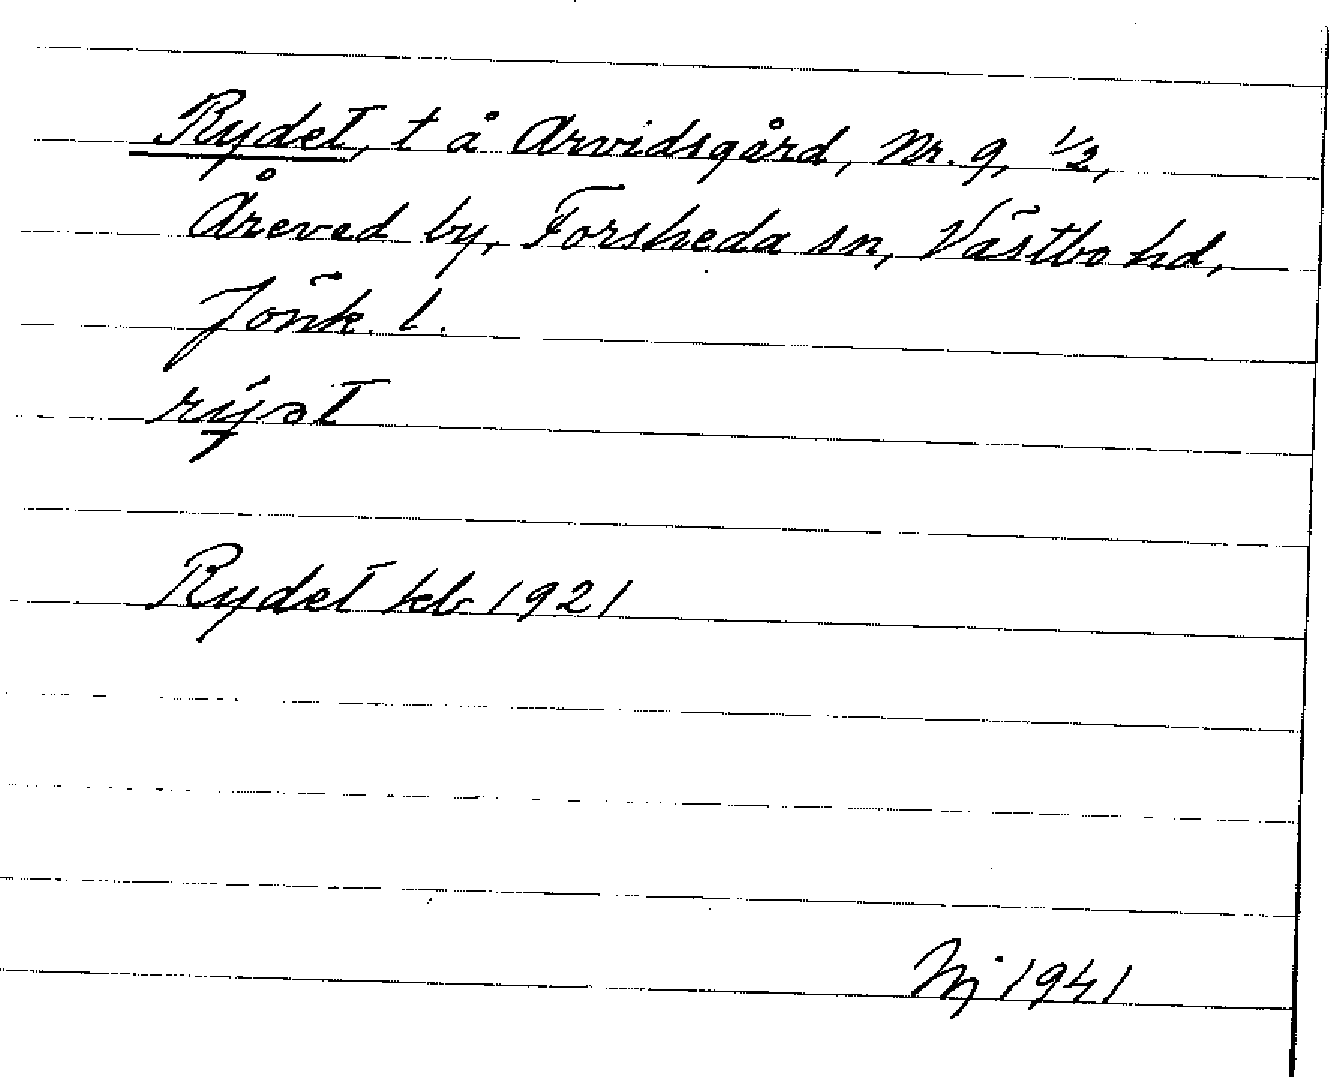 Rydet, t å Arvidsgård, Nr. 9, 1/2,
Åreved by, Forsheda sn, Västbo hd,
Jönk. l.
rýət
Rydet kb 1921
1941